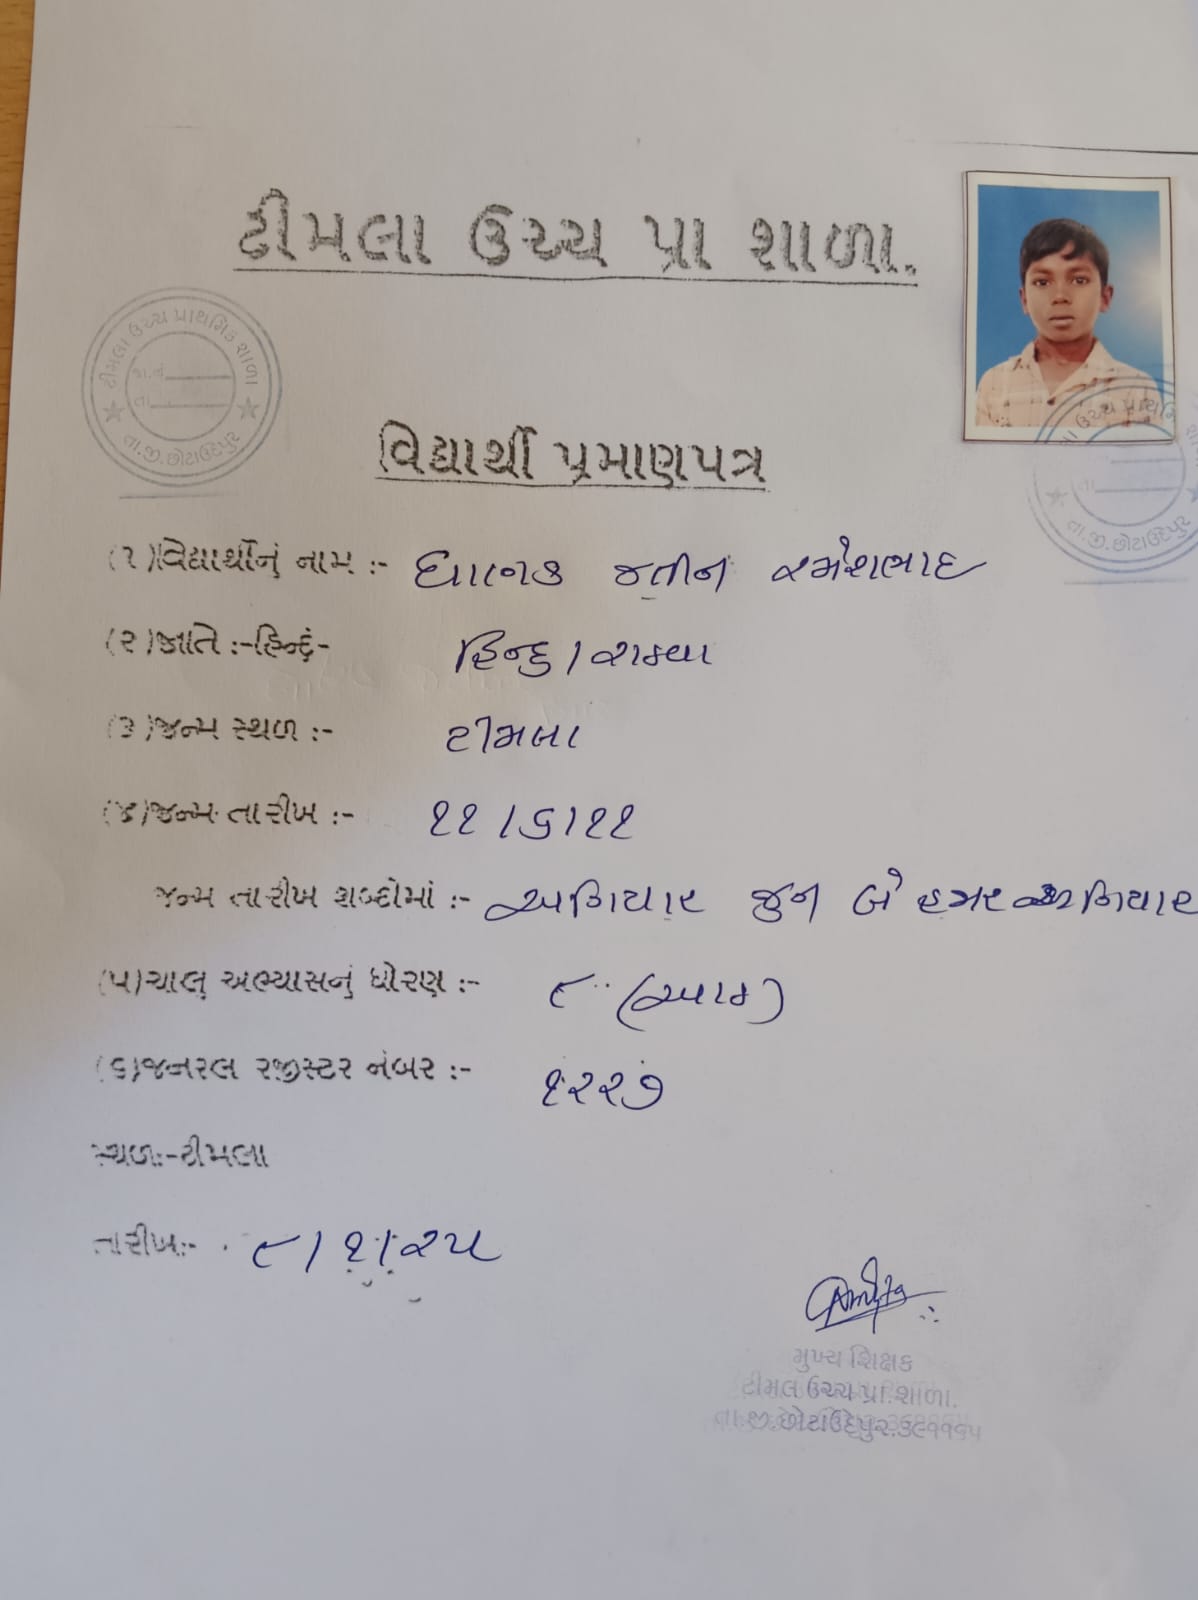 ટીમલા ઉચ્ચ પ્રા શાળા.
ટીમલા ઉચ્ચ પ્રાથમિક શાળા
જા.નં.
તા.
તા.જી.છોટાઉદેપુર
વિદ્યાર્થી પ્રમાણપત્ર
(૧)વિદ્યાર્થીનું નામ :- ધાણક જતીન રમેશભાઇ
(૨)જાતિ :-હિન્દું- હિન્દુ /
(૩)જન્મ સ્થળ :- ટીમલા
(૪)જન્મ તારીખ :- ૧૧ /૬/૧૧
જન્મ તારીખ શબ્દોમાં :- અગિયાર જુન બે હજાર અગિયાર
(૫)ચાલુ અભ્યાસનું ધોરણ :- ૮ (આઠ)
(૬)જનરલ રજીસ્ટર નંબર :- ૧૨૨૭
સ્થળ:-ટીમલા
તારીખ:- ૮/૧/૨૫
મુખ્ય શિક્ષક
ટીમલ ઉચ્ચ પ્રા.શાળા.
તા.જી.છોટાઉદેપુર.૩૯૧૧૬૫